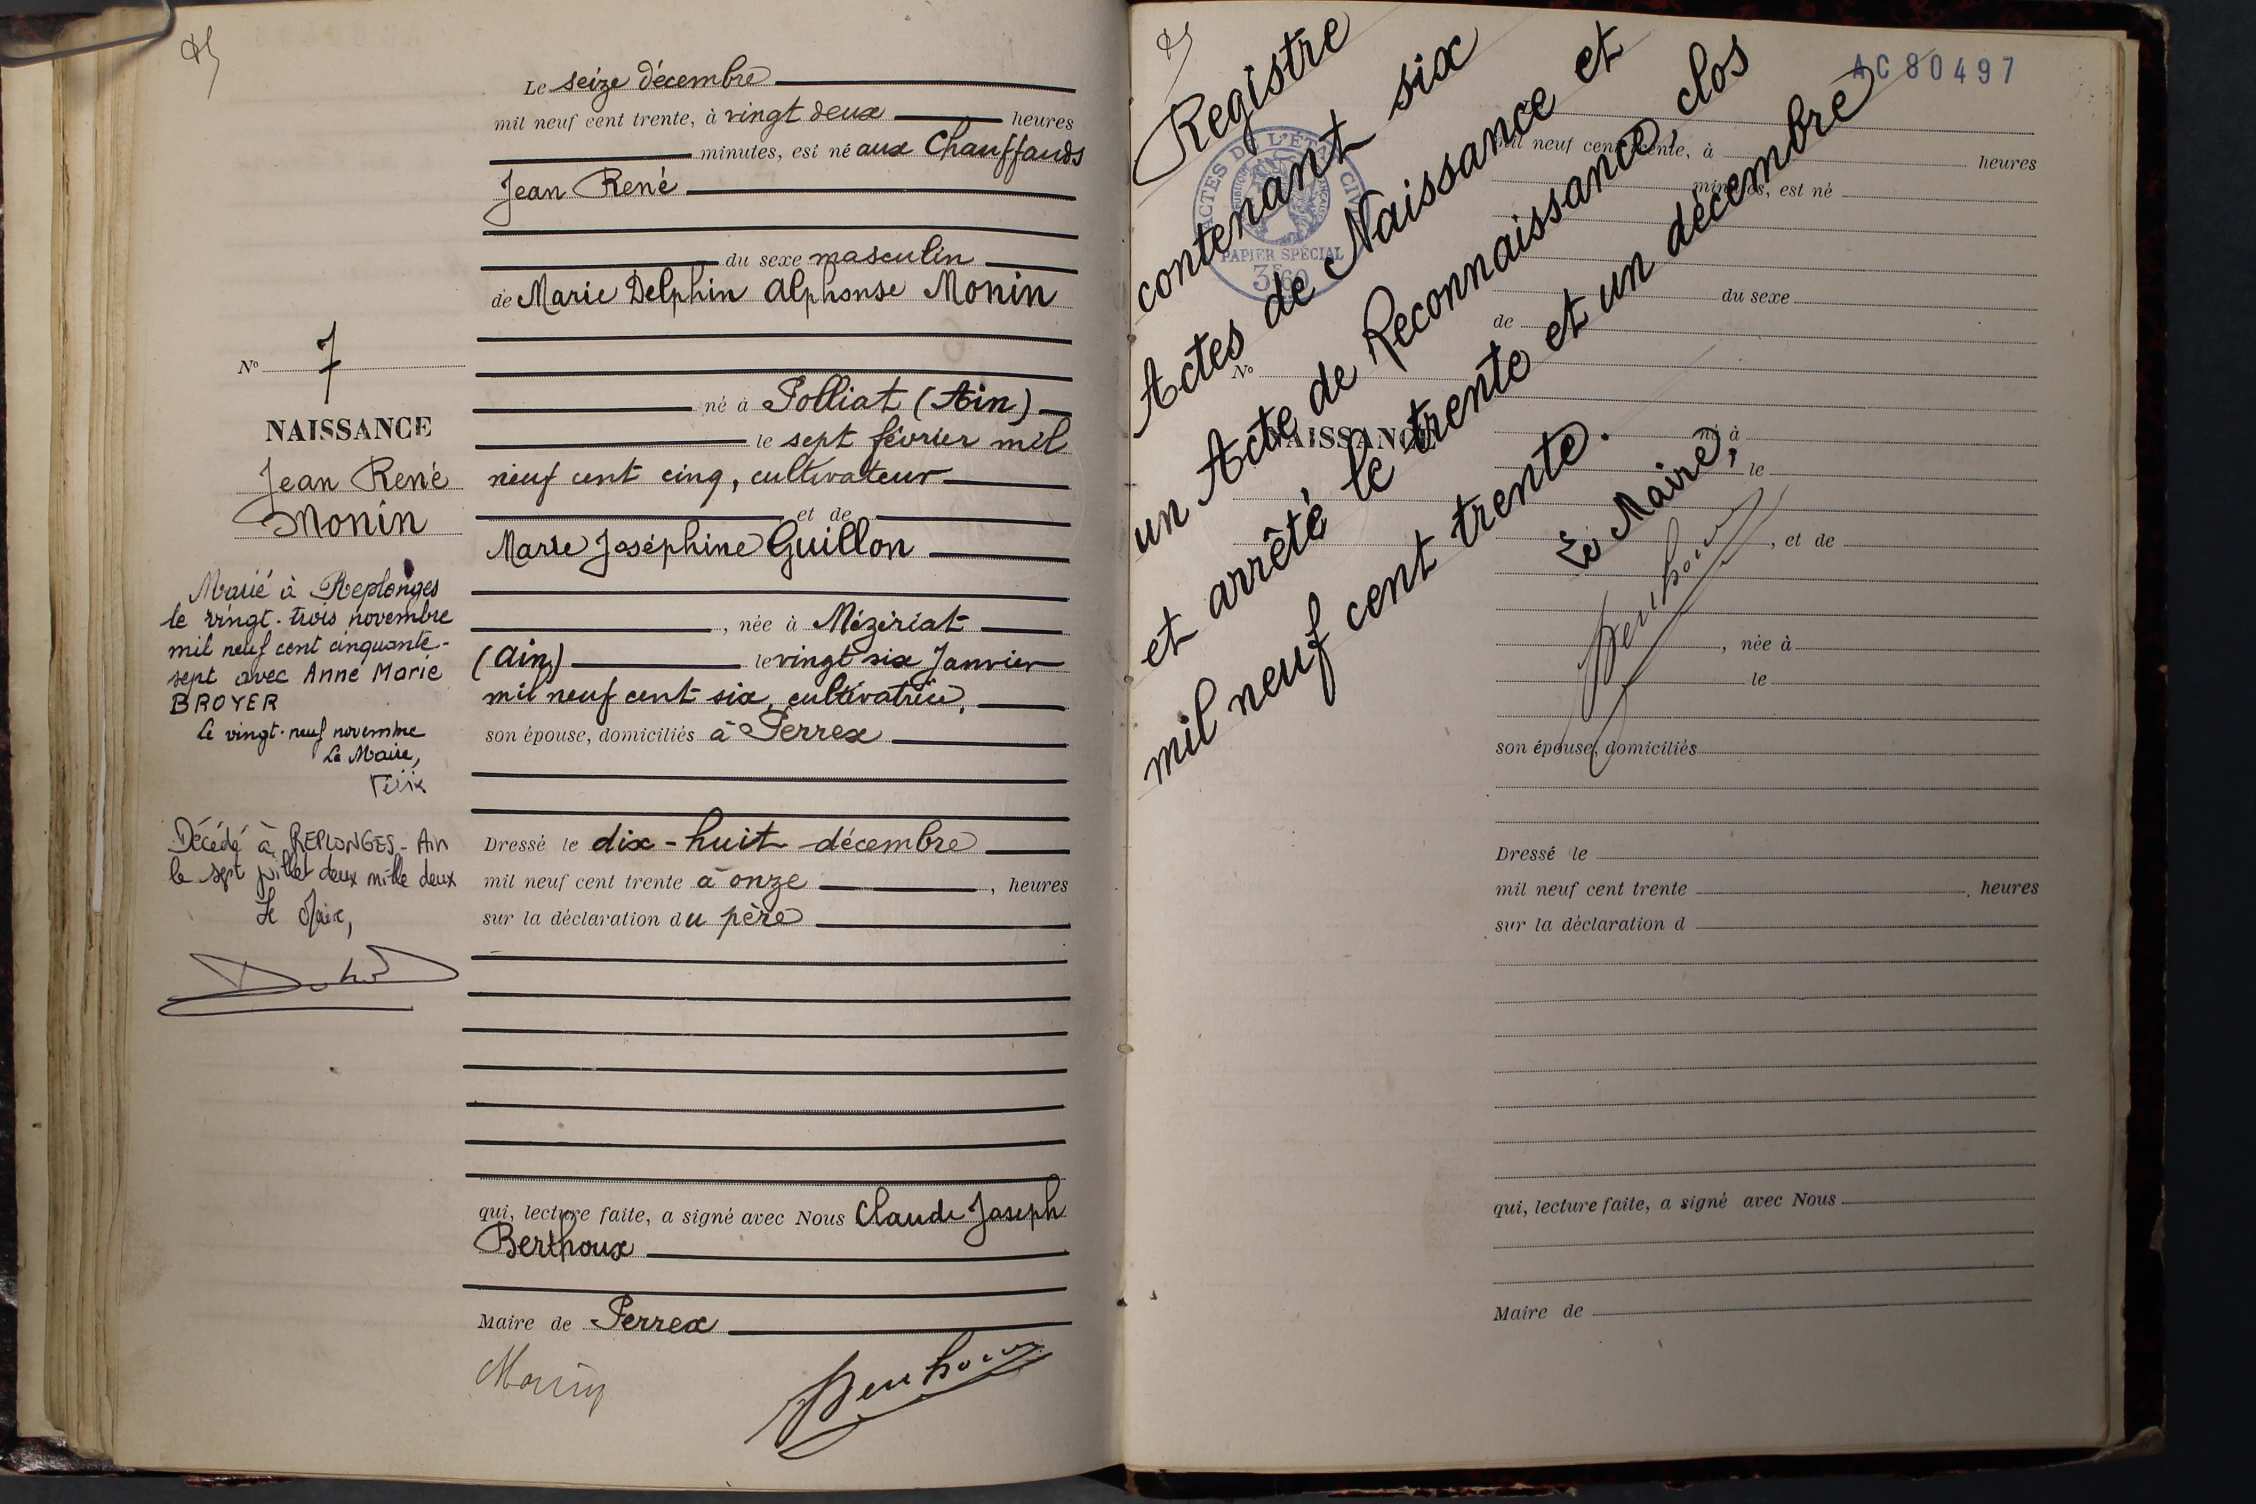 Le seize décembre
mil neuf cent trente, à vingt deux heures
minutes, est né aux Chauffauds
Jean René
du sexe masculin
de Marie Delphin Alphonse Monin
né à Polliat (Ain)
le sept février mil
neuf cent cinq, cultivateur
et de
Marie Joséphine Guillon
, née à Mézériat
(Ain) le vingt six Janvier
mil neuf cent six, cultivatrice,
son épouse, domiciliés à Perrex
Dressé le dix-huit décembre
mil neuf cent trente à onze, heures
sur la déclaration du père
qui, lecture faite, a signé avec Nous Claude Joseph
Berthoux
Maire de Perrex
Monin
Berthoux
No 7
NAISSANCE
Jean René
Monin
Marié à Replonges
le vingt-trois novembre
mil neuf cent cinquante-
sept avec Anne Marie
BROYER
Le vingt-neuf novembre
Le Maire,
Décédé à REPLONGES-Ain
le sept juillet deux mille deux
Le Maire,
AC80497
Registre
contenant six
Actes de Naissance et
un Acte de Reconnaissance, clos
et arrêté le trente et un décembre
mil neuf cent trente.
Le Maire,
Berthoux
ACTES DE L'ÉTAT CIVIL
PAPIER SPÉCIAL
3F60
mil neuf cent trente, à heures
minutes, est né
du sexe
de
No
NAISSANCE
né à
le
, et de
, née à
le
son épouse, domiciliés
Dressé le
mil neuf cent trente , heures
sur la déclaration d
qui, lecture faite, a signé avec Nous
Maire de